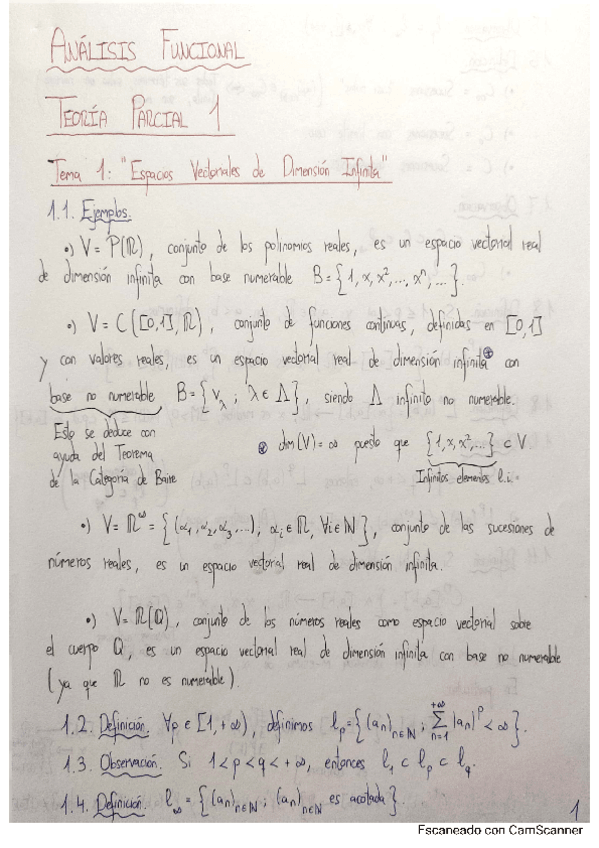 ANÁLISIS FUNCIONAL
TEORÍA PARCIAL 1
Tema 1: "Espacios Vectoriales de Dimensión Infinita"
1.1. Ejemplos.
•) V = P(ℝ), conjunto de los polinomios reales, es un espacio vectorial real
de dimensión infinita con base numerable B = {1, x, x², ..., xⁿ, ...}.
•) V = C([0,1], ℝ), conjunto de funciones continuas, definidas en [0,1]
y con valores reales, es un espacio vectorial real de dimensión infinita⊛ con
base no numerable B = {v_λ ; λ ∈ Λ}, siendo Λ infinito no numerable.
Esto se deduce con
ayuda del Teorema
de la Categoría de Baire
⊛ dim(V) = ∞ puesto que {1, x, x², ...} ⊂ V.
Infinitos elementos l.i.
•) V = ℝ^ω = {(α₁, α₂, α₃, ...), αᵢ ∈ ℝ, ∀i ∈ ℕ}, conjunto de las sucesiones de
números reales, es un espacio vectorial real de dimensión infinita.
•) V = ℝ(ℚ), conjunto de los números reales como espacio vectorial sobre
el cuerpo ℚ, es un espacio vectorial real de dimensión infinita con base no numerable
(ya que ℝ no es numerable).
1.2. Definición. ∀p ∈ [1, +∞), definimos l_p = {(aₙ)_{n∈ℕ} ; ∑_{n=1}^{+∞} |aₙ|^p < ∞}.
1.3. Observación. Si 1 < p < q < +∞, entonces l₁ ⊂ l_p ⊂ l_q.
1.4. Definición. l_∞ = {(aₙ)_{n∈ℕ} ; (aₙ)_{n∈ℕ} es acotada}.
1
Escaneado con CamScanner